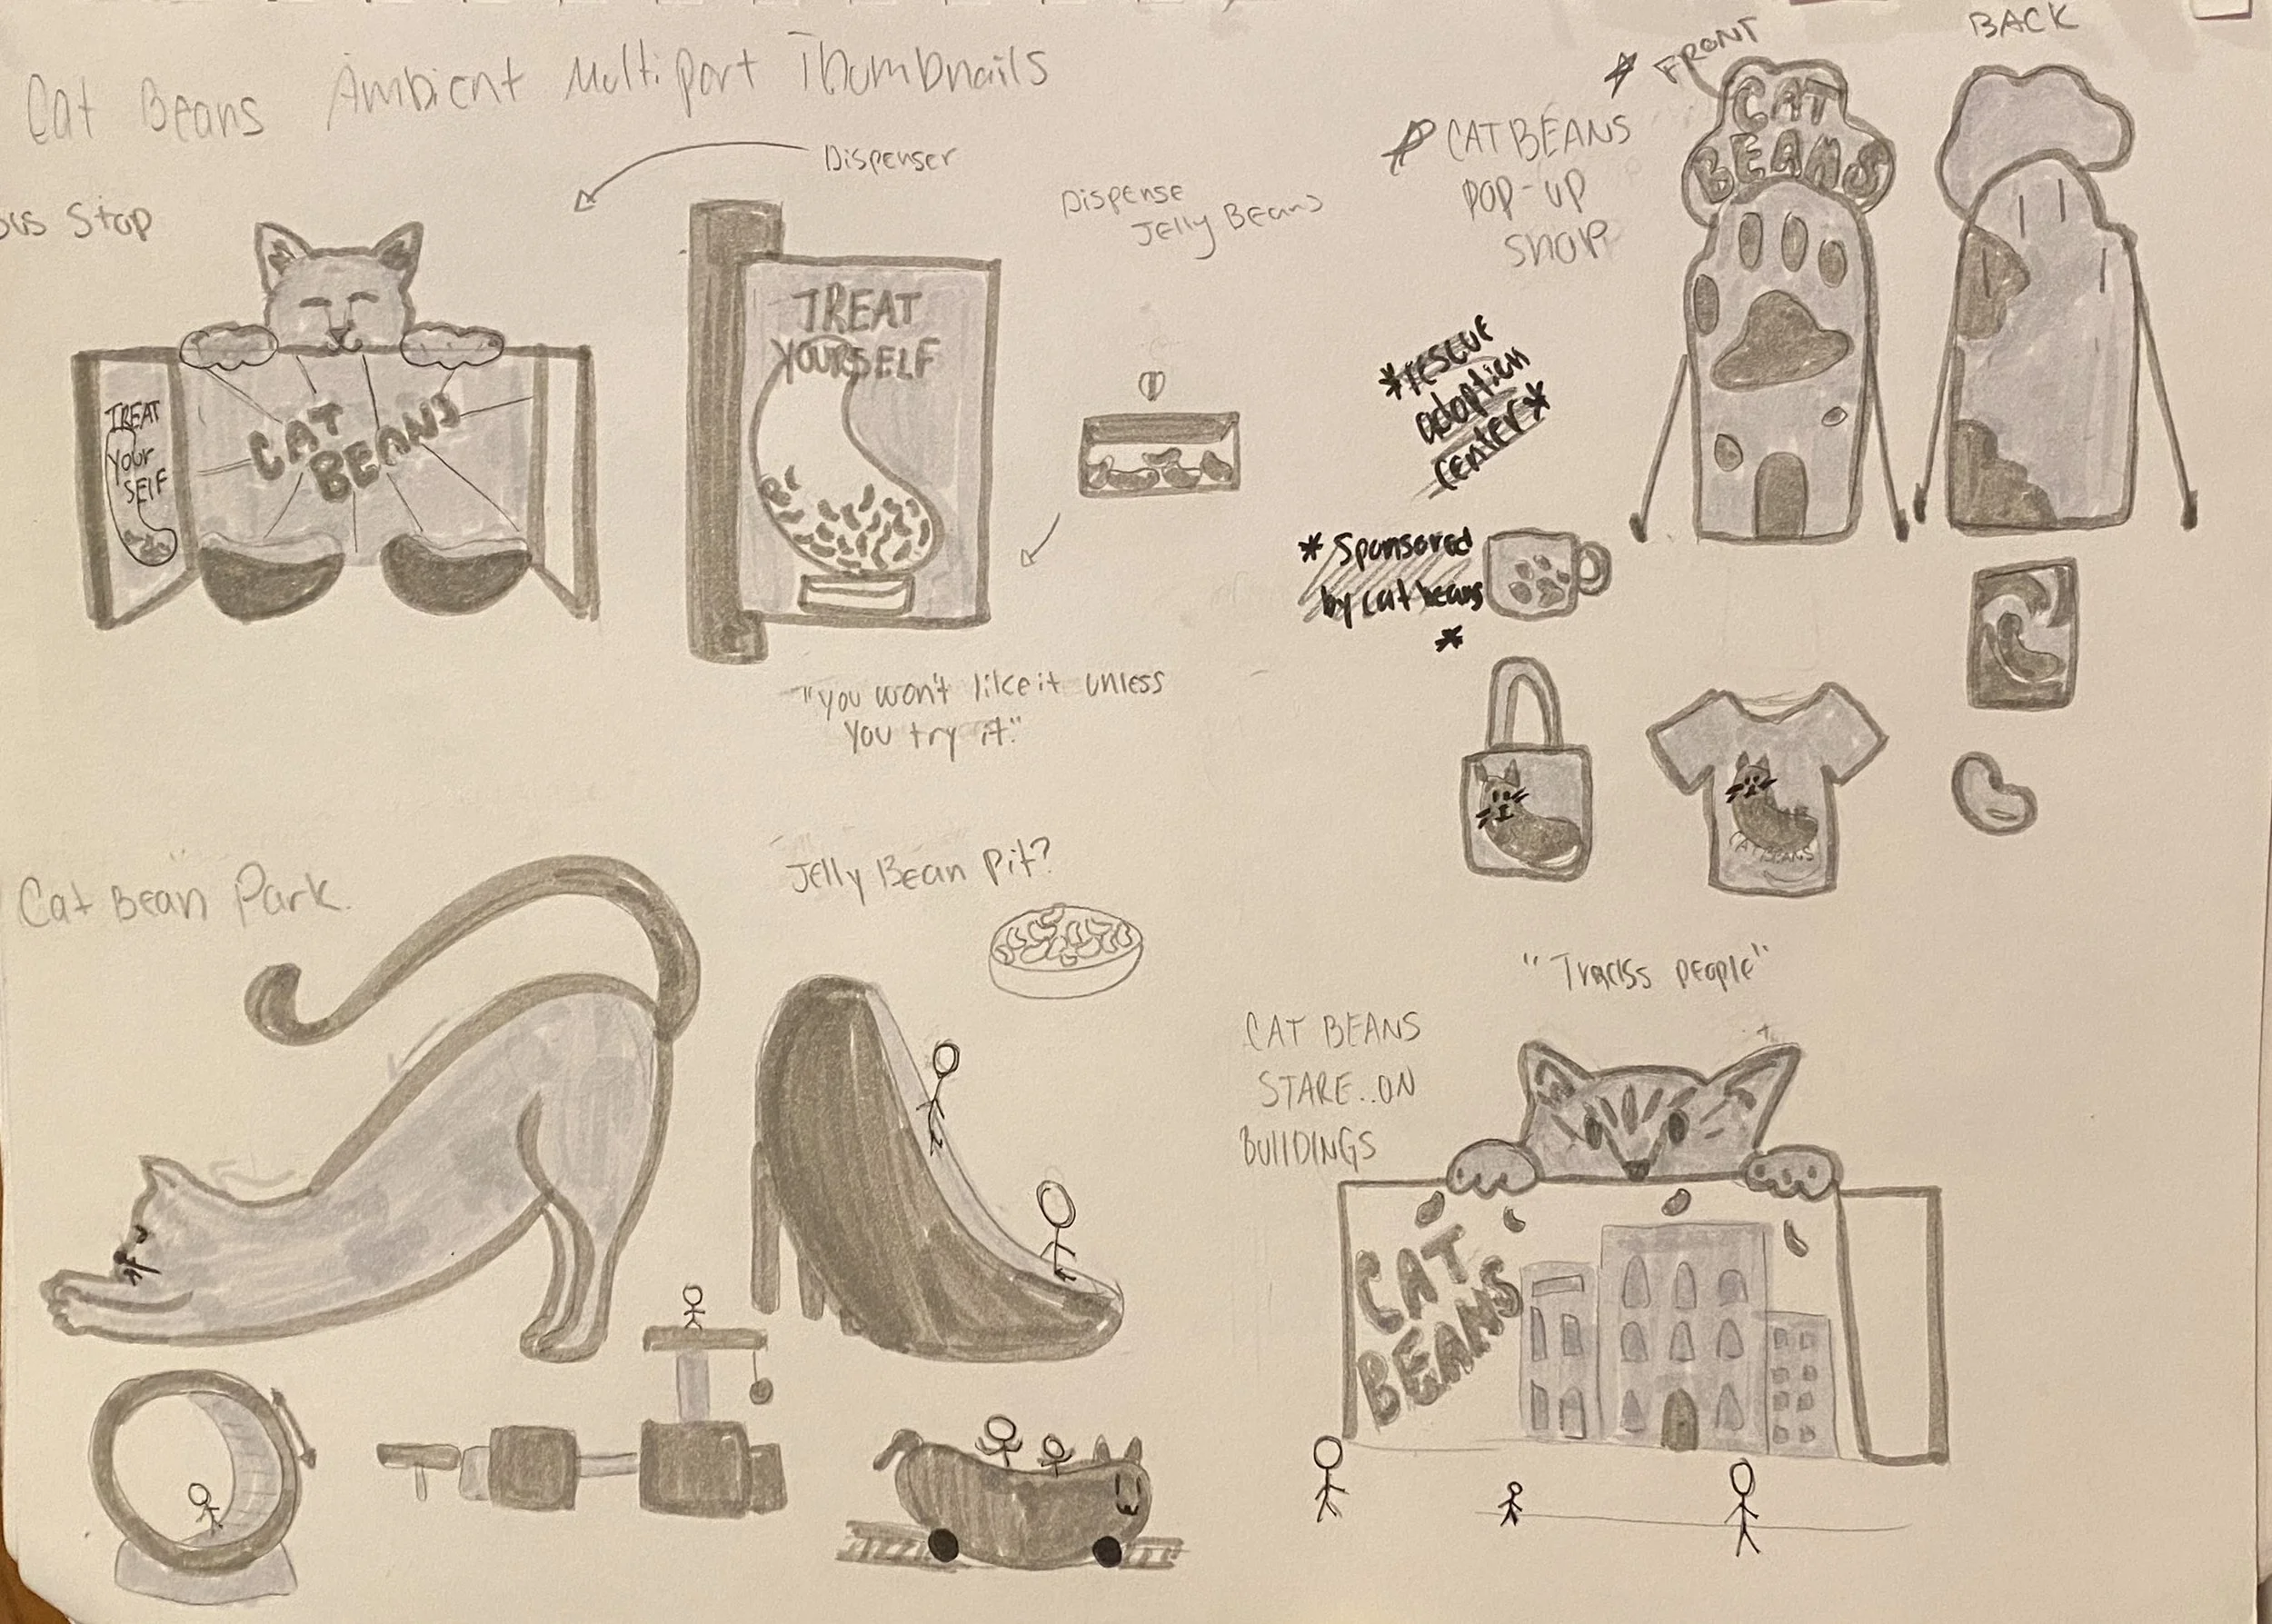 Cat Beans Ambient Multipart Thumbnails
Bus Stop
TREAT
Your
SElF
CAT
BEANS
Dispenser
TREAT
YOURSELF
Dispense
Jelly Beans
"You won't like it unless
You try it."
FRONT
BACK
CAT BEANS
POP-UP
SHOP
CAT
BEANS
*rescue
adoption
center*
* Sponsored
by cat beans
*
CAT BEANS
Cat Bean Park.
Jelly Bean Pit?
people"
CAT BEANS
STARE..ON
BUILDINGS
CAT
BEANS